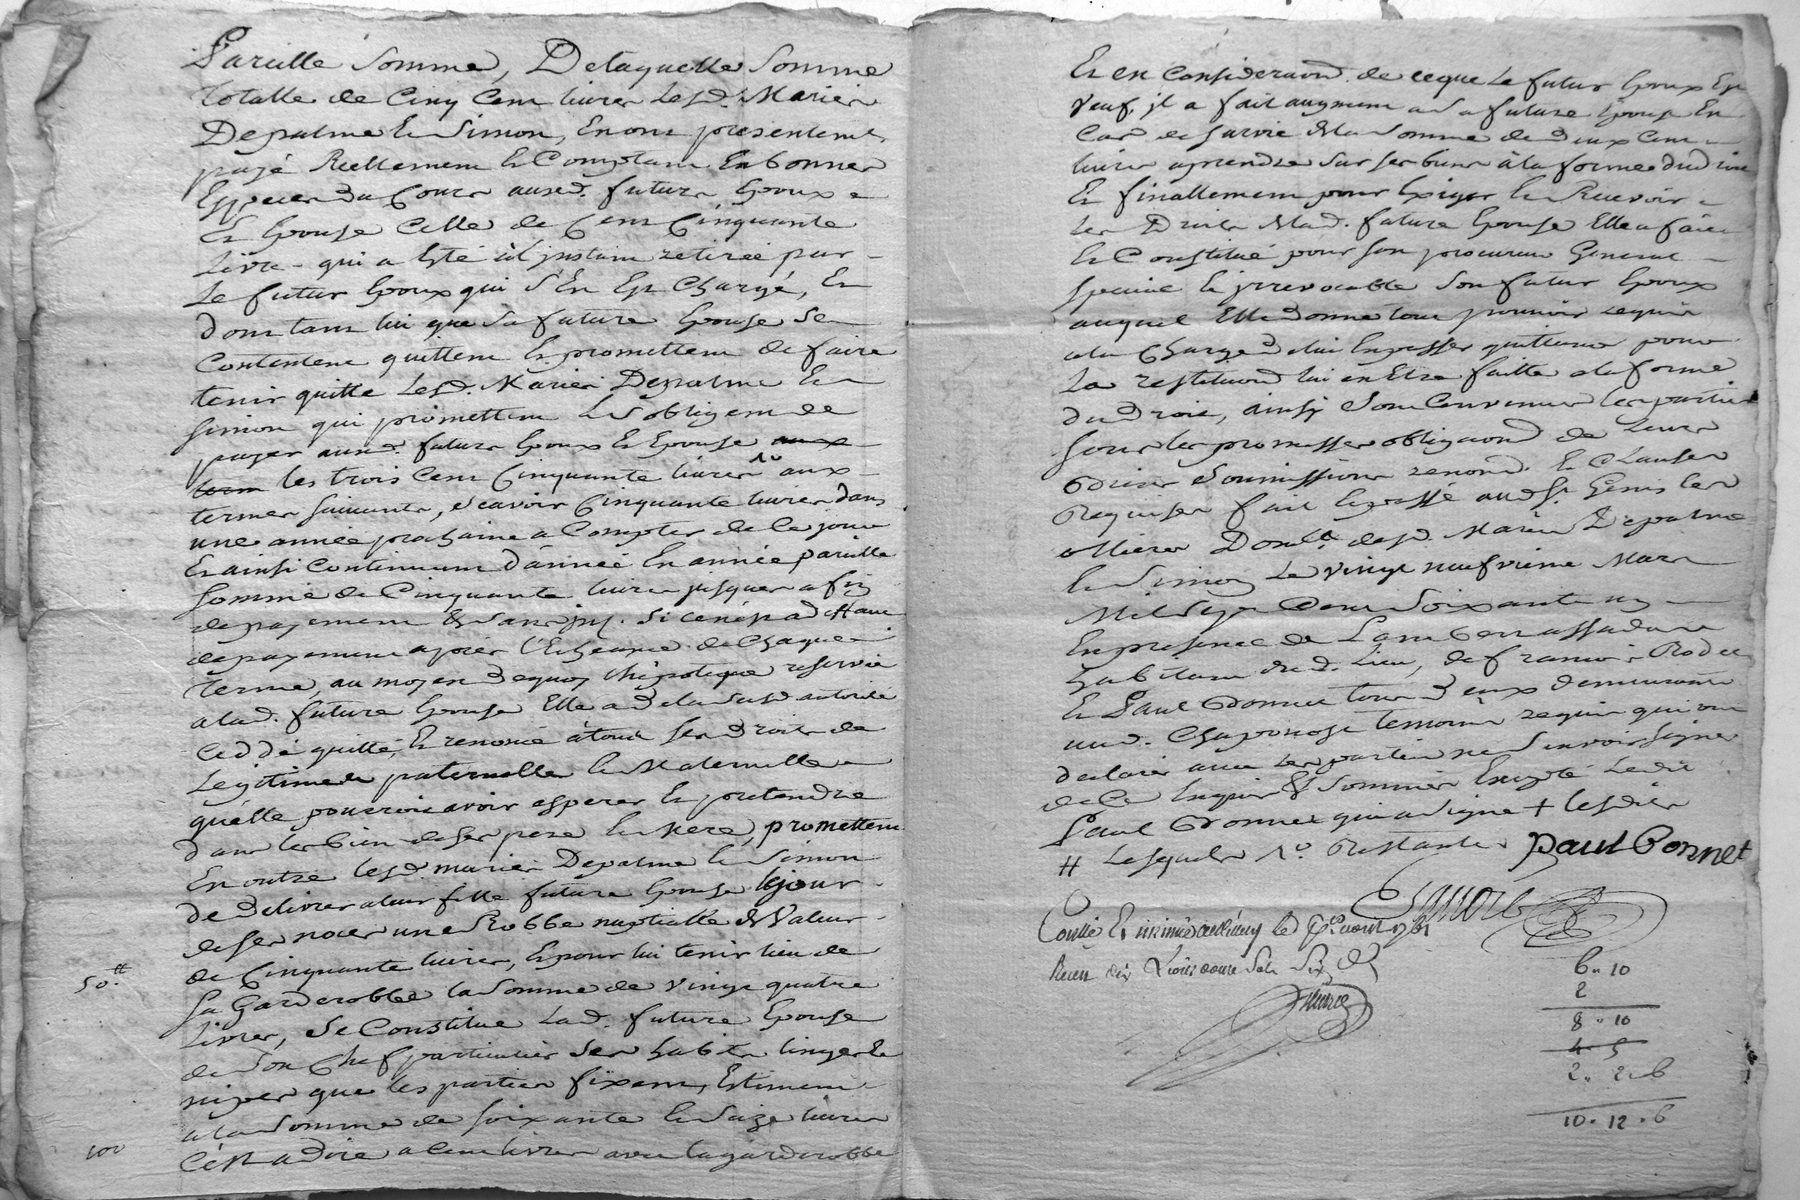 Pareille somme, De laquelle somme
totalle de Cinq Cent livres Lesd. Mariés
Depalme & Simon, En ont presentement
payé Reellement & Comptant En bonnes
Especes du Cours auxd. futurs Epoux
Et Epouse Celle de Cent Cinquante
Livre - qui a Eté à l'jnstant retirée par -
Le futur Epoux qui s'En Est Chargé, En
dont tant lui que sa future Epouse se
Contentent quittent & promettent de faire
tenir quitte Lesd. Mariés Depalme Et
Simon qui promettent & s'obligent de
payer auxd. futurs Epoux Et Epouse aux
les trois Cent Cinquante livres aux
termes suivants, sçavoir Cinquante livres dans
une année prochaine a Compter de Ce jour
Et ainsi Continuant d'année En année pareille
somme de Cinquante livres jusques a fin
de payement & sans jnt. si ce n'est a deffaut
de payement apres l'Echeance de Chaque
terme, au moyen de quoy l'hipoteque reservée
a lad. future Epouse Elle a de la susd. autorité
Ceddé quitté, Et renoncé à tous ses droits de
Legitime paternelle & Maternelle
qu'elle pourroit avoir esperer & pretendre
dans les biens de ses pere & Mere, promettent
En outre lesd. mariés Depalme & Simon
de délivrer a leur fille future Epouse le jour
de ses noces une Robbe nuptialle de Valeur
de Cinquante livres, Et pour lui tenir lieu de
50.tt
sa Garderobbe la somme de vingt quatre
Livres, se Constitue Lad. future Epouse
de son Chef particulier ses habits linges &
nipes que les parties fixent, Estiment
a la somme de soixante & saize livres
100
C'est a dire a Cent livres avec la garderobbe
Et en Consideraon. de ce que Le futur Epoux Est
Veuf, jl a fait augment a sa future Epouse En
Cas de survie de la somme de deux Cent
livres a prendre sur ses biens à la forme du droit
Et finallement pour Exiger & Recevoir
les Droits de lad. future Epouse Elle a fait
& Constitué pour son procureur General
special & jrrevocable son futur Epoux
auquel Elle donne tout pouvoir requis
a la Charge d'elui En passer quittance pour
La restitution lui en Etre faitte a la forme
du Droit, ainsy Sont Convenues les parties
sous les promesses obligaons. de leurs
Biens soumissions renonc. & Clauses
Requises fait & passé aud. St. Genis les
ollieres Domlle. desd. Mariés Depalme
& Simon Le vingt neufvieme Mars
Mil Sept Cent Soixante un
En presence de
habitant dud. Lieu, de françois Rodet
& Paul Bonnet tous deux demeurants
aud. Chaponost temoins requis qui ont
declaré avec les parties ne savoir signer
de Ce Enquis & Sommés Excepté Ledit
Paul Bonnet qui a signé + lesdits
# Lesquels Restantes Paul Bonnet
Recu dix Livres douze sols Six d.
6 " 10
2
8 " 10
4 " 5
2 " 2 " 6
10 " 12 " 6